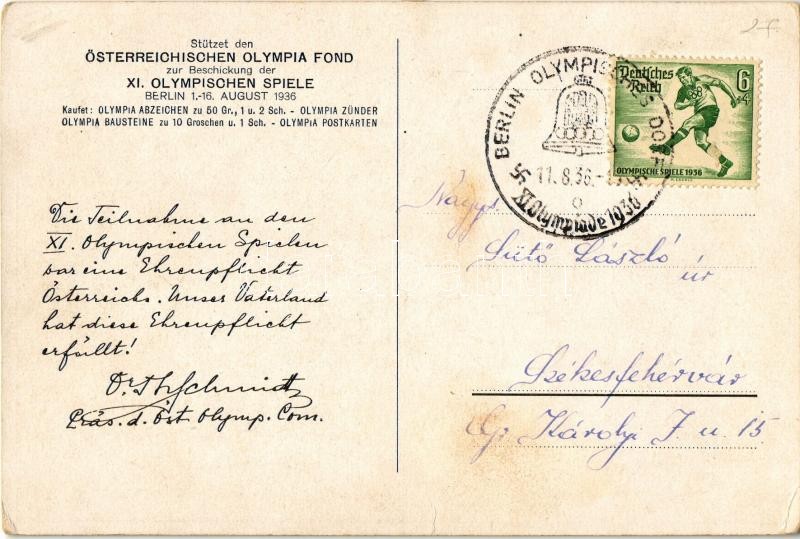 Stützet den
ÖSTERREICHISCHEN OLYMPIA FOND
zur Beschickung der
XI. OLYMPISCHEN SPIELE
BERLIN 1.-16. AUGUST 1936
Kaufet: OLYMPIA ABZEICHEN zu 50 Gr., 1 u. 2 Sch. - OLYMPIA ZÜNDER
OLYMPIA BAUSTEINE zu 10 Groschen u. 1 Sch. - OLYMPIA POSTKARTEN
Die Teilnahme an den
XI. Olympischen Spielen
war eine Ehrenpflicht
Österreichs. Unser Vaterland
hat diese Ehrenpflicht
erfüllt!
Dr. Schmidt
Präs. d. Öst. Olymp. Com.
BERLIN OLYMPISCHES DORF
11.8.36.-
XI. Olympiade 1936
Deutsches
Reich
6
+4
OLYMPISCHE SPIELE 1936
Nagys.
Sütő László
úr
Székesfehérvár
Gr. Károlyi J. u. 15